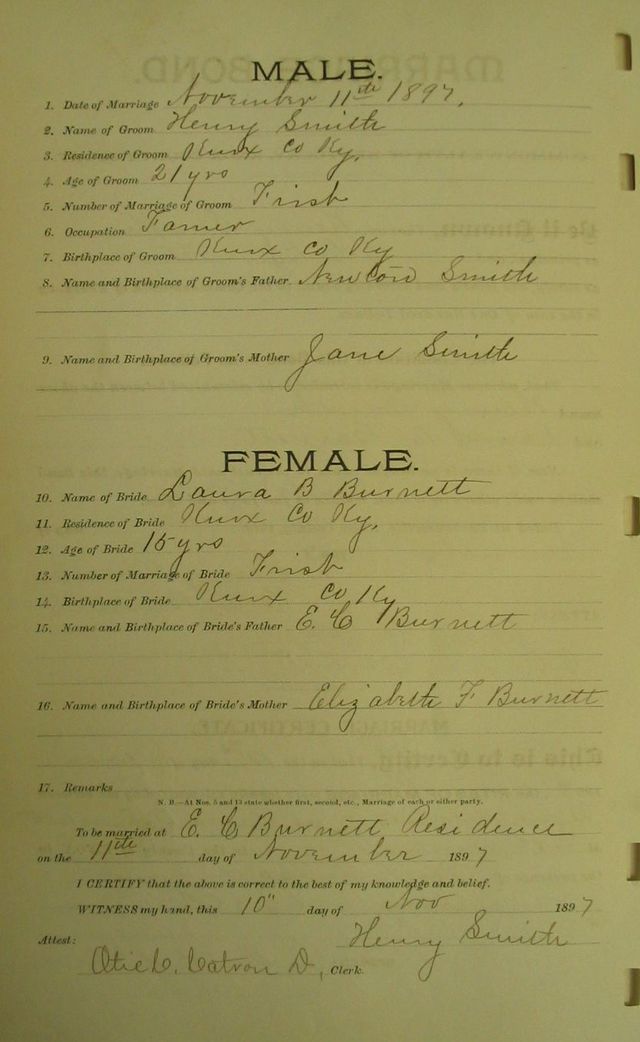 MALE.
1. Date of Marriage November 11th 1897.
2. Name of Groom Henry Smith
3. Residence of Groom Knox Co Ky,
4. Age of Groom 21 yrs
5. Number of Marriage of Groom First
6. Occupation Farmer
7. Birthplace of Groom Knox Co Ky
8. Name and Birthplace of Groom's Father Smith
9. Name and Birthplace of Groom's Mother Jane Smith
FEMALE.
10. Name of Bride Laura B Burnett
11. Residence of Bride Knox Co Ky,
12. Age of Bride 15 yrs
13. Number of Marriage of Bride First
14. Birthplace of Bride Knox Co Ky
15. Name and Birthplace of Bride's Father E. C Burnett
16. Name and Birthplace of Bride's Mother Elizabeth F Burnett
17. Remarks
N. B.—At Nos. 5 and 13 state whether first, second, etc., Marriage of each or either party.
To be married at E. C Burnett Residence
on the 11th day of November 1897
I CERTIFY that the above is correct to the best of my knowledge and belief.
WITNESS my hand, this 10" day of Nov 1897
Henry Smith
Attest:
Catron D, Clerk.